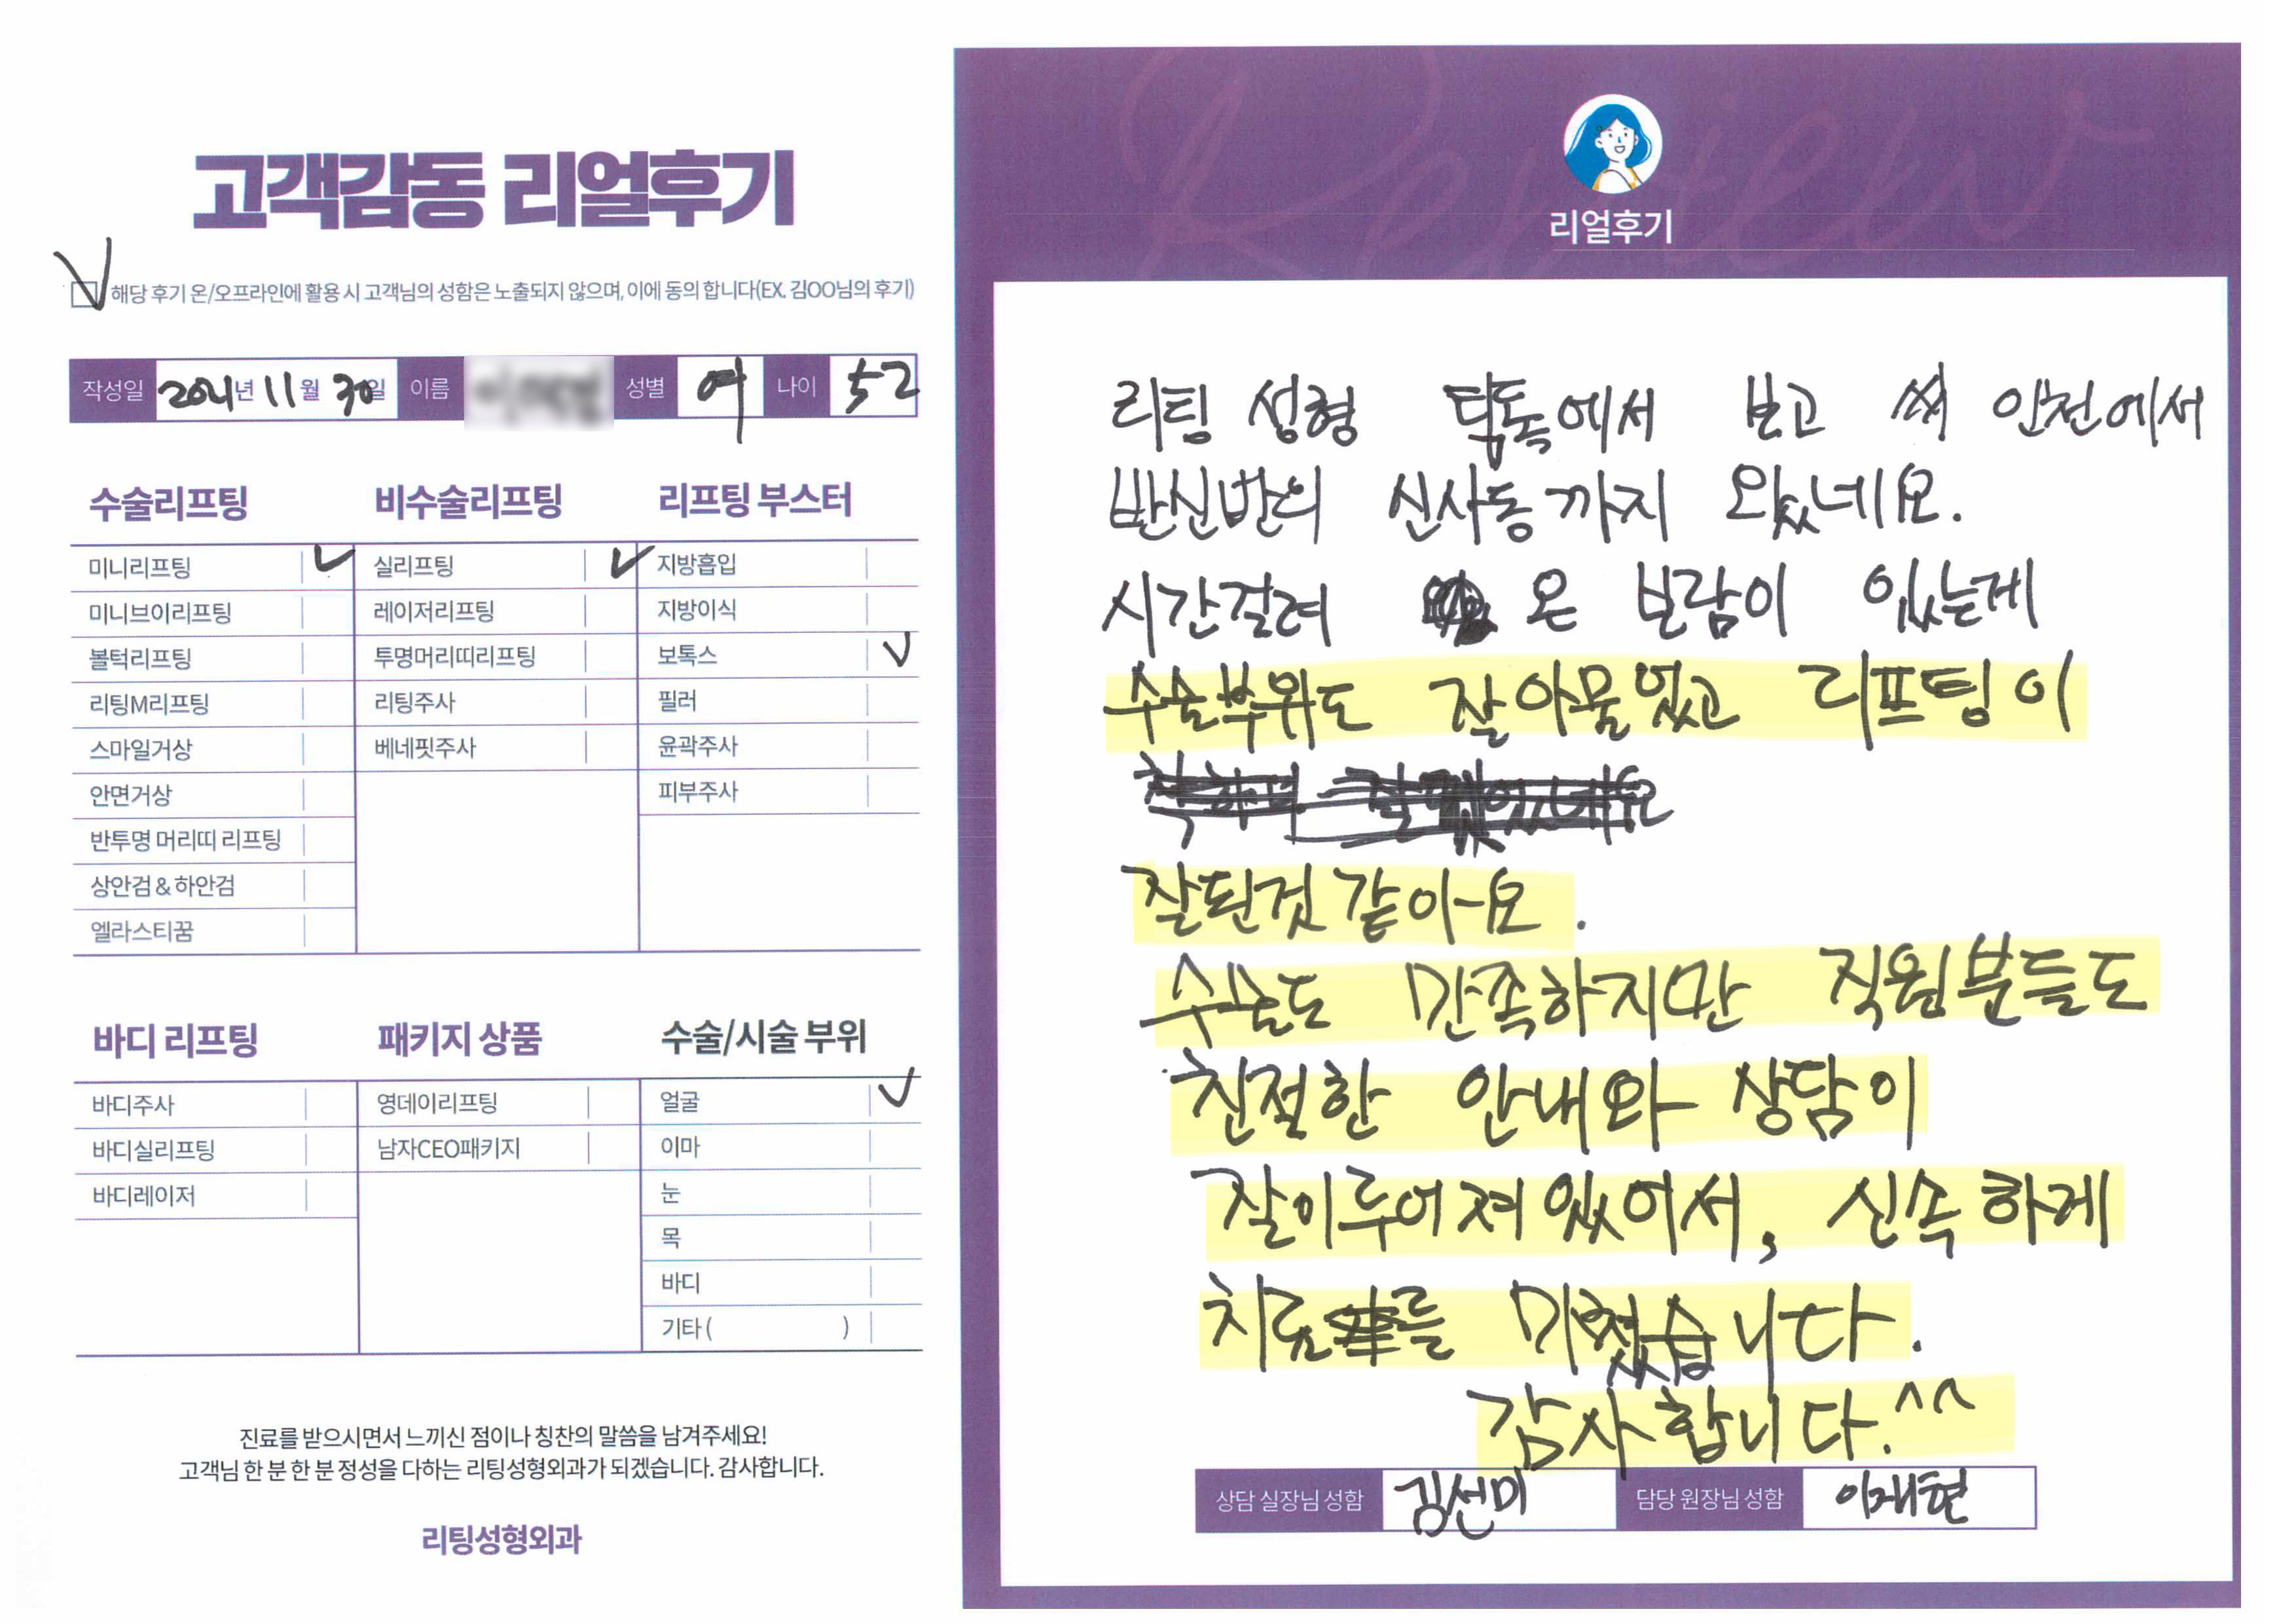 고객감동 리얼후기
해당 후기 온/오프라인에 활용 시 고객님의 성함은 노출되지 않으며, 이에 동의 합니다(EX. 김OO님의 후기)
작성일 2021년 11월 30일 이름 성별 여 나이 52
수술리프팅
미니리프팅
미니브이리프팅
볼턱리프팅
리팅M리프팅
스마일거상
안면거상
반투명 머리띠 리프팅
상안검 & 하안검
엘라스티꿈
비수술리프팅
실리프팅
레이저리프팅
투명머리띠리프팅
리팅주사
베네핏주사
리프팅 부스터
지방흡입
지방이식
보톡스
필러
윤곽주사
피부주사
바디 리프팅
바디주사
바디실리프팅
바디레이저
패키지 상품
영데이리프팅
남자CEO패키지
수술/시술 부위
얼굴
이마
눈
목
바디
기타 ( )
진료를 받으시면서 느끼신 점이나 칭찬의 말씀을 남겨주세요!
고객님 한 분 한 분 정성을 다하는 리팅성형외과가 되겠습니다. 감사합니다.
리팅성형외과
Review
리얼후기
리팅 성형 닥톡에서 보고 인천에서
반신반의 신사동까지 왔네요.
시간걸려 온 보람이 있는게
수술부위도 잘아물었고 리프팅이
잘된것 같아요.
수술도 만족하지만 직원분들도
친절한 안내와 상담이
잘이루어져 있어서, 신속하게
치료를 마쳤습니다.
감사합니다.^^
상담 실장님 성함 김선미 담당 원장님 성함 이재현